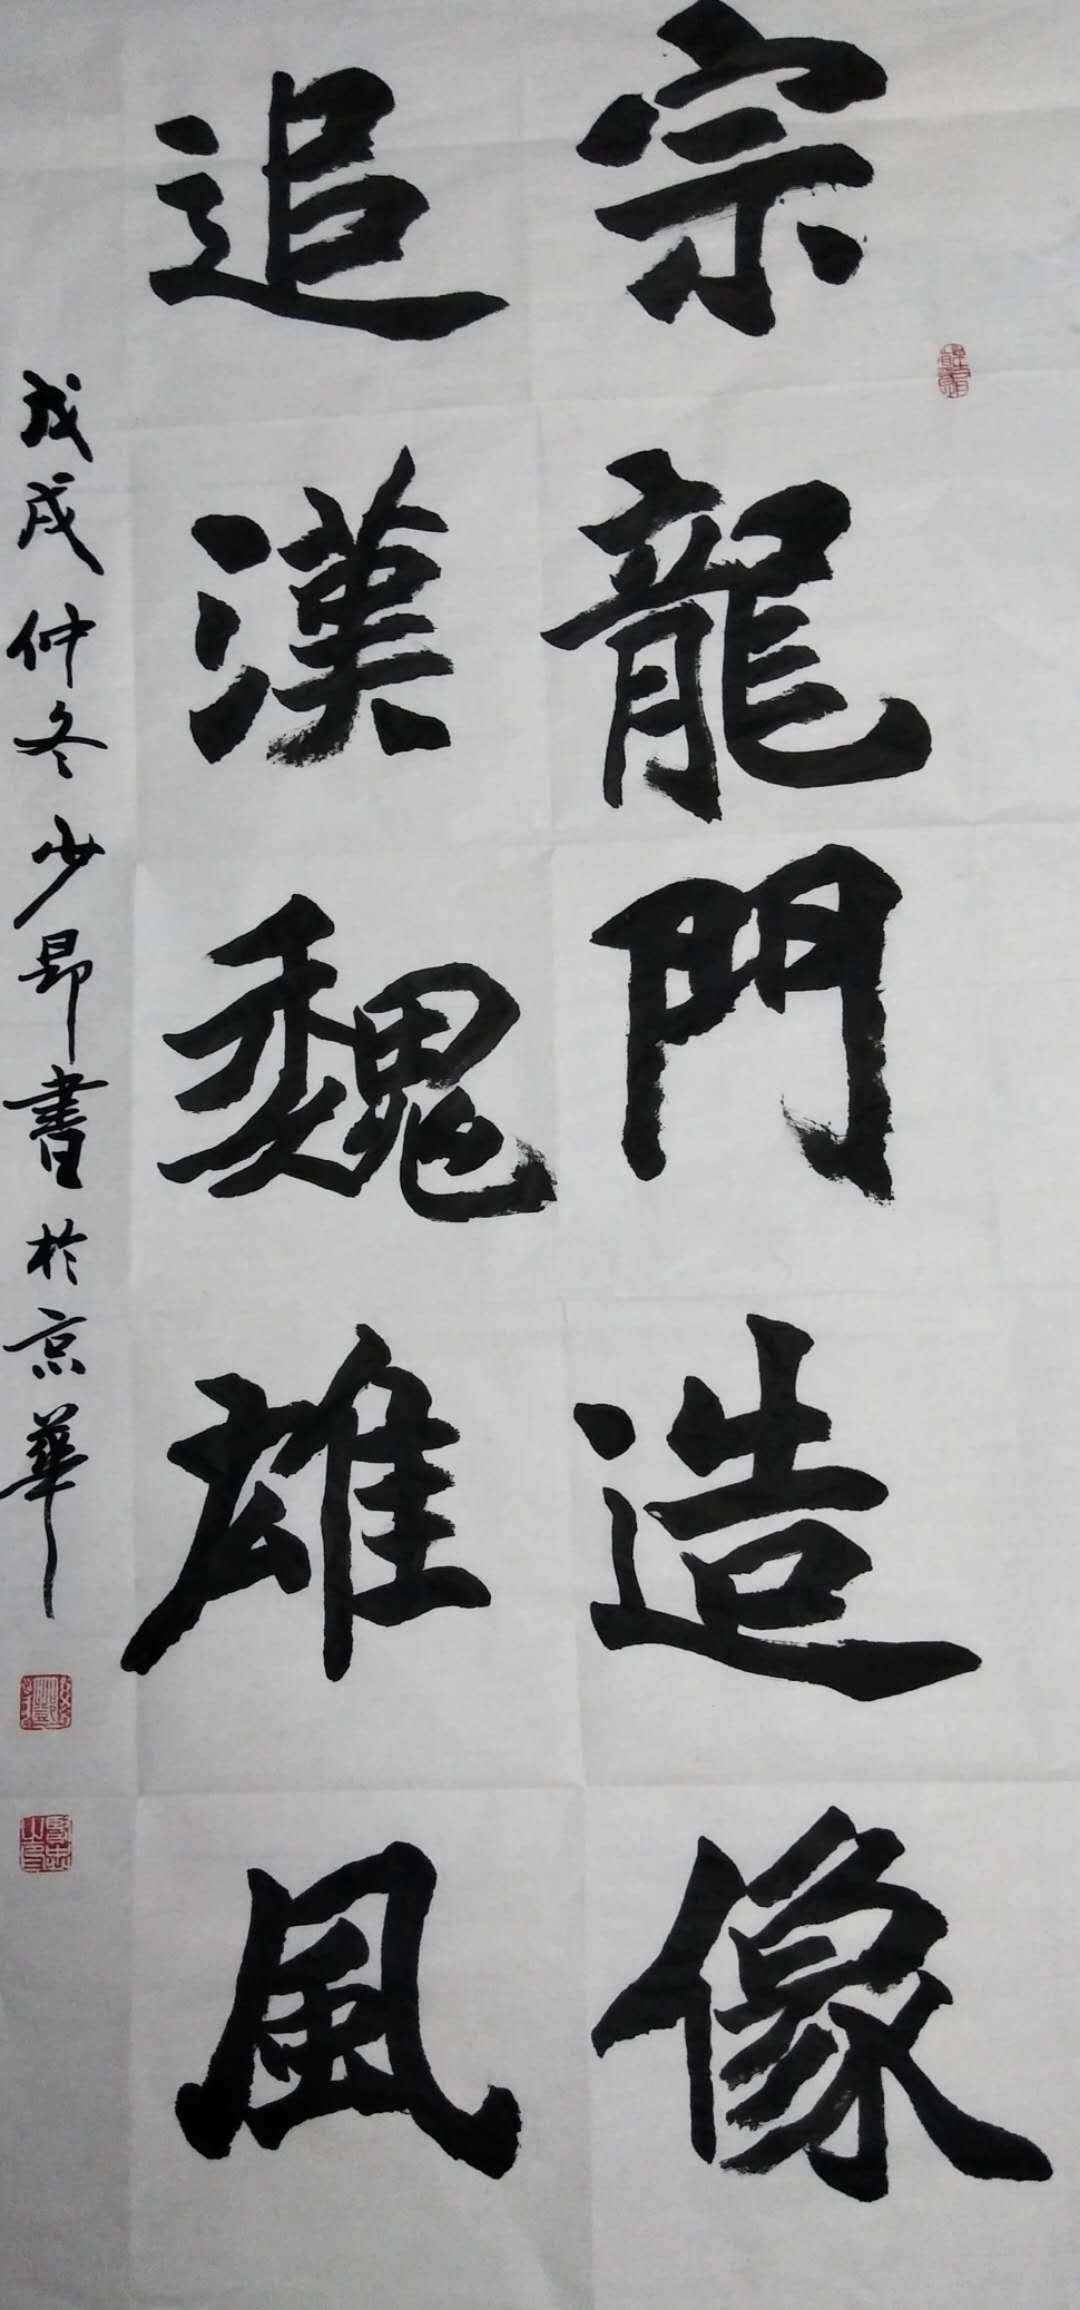 宗龍門造像
追漢魏雄風
戊戌仲冬少昂書於京華